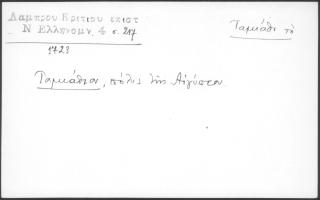 Λαμπρου Κριτιου επιστ
Ν Ελληνομν. 4 σ. 217
1723
Ταμιάθι τὸ
Ταμιάθιον, πόλις τῆς Αἰγύπτου